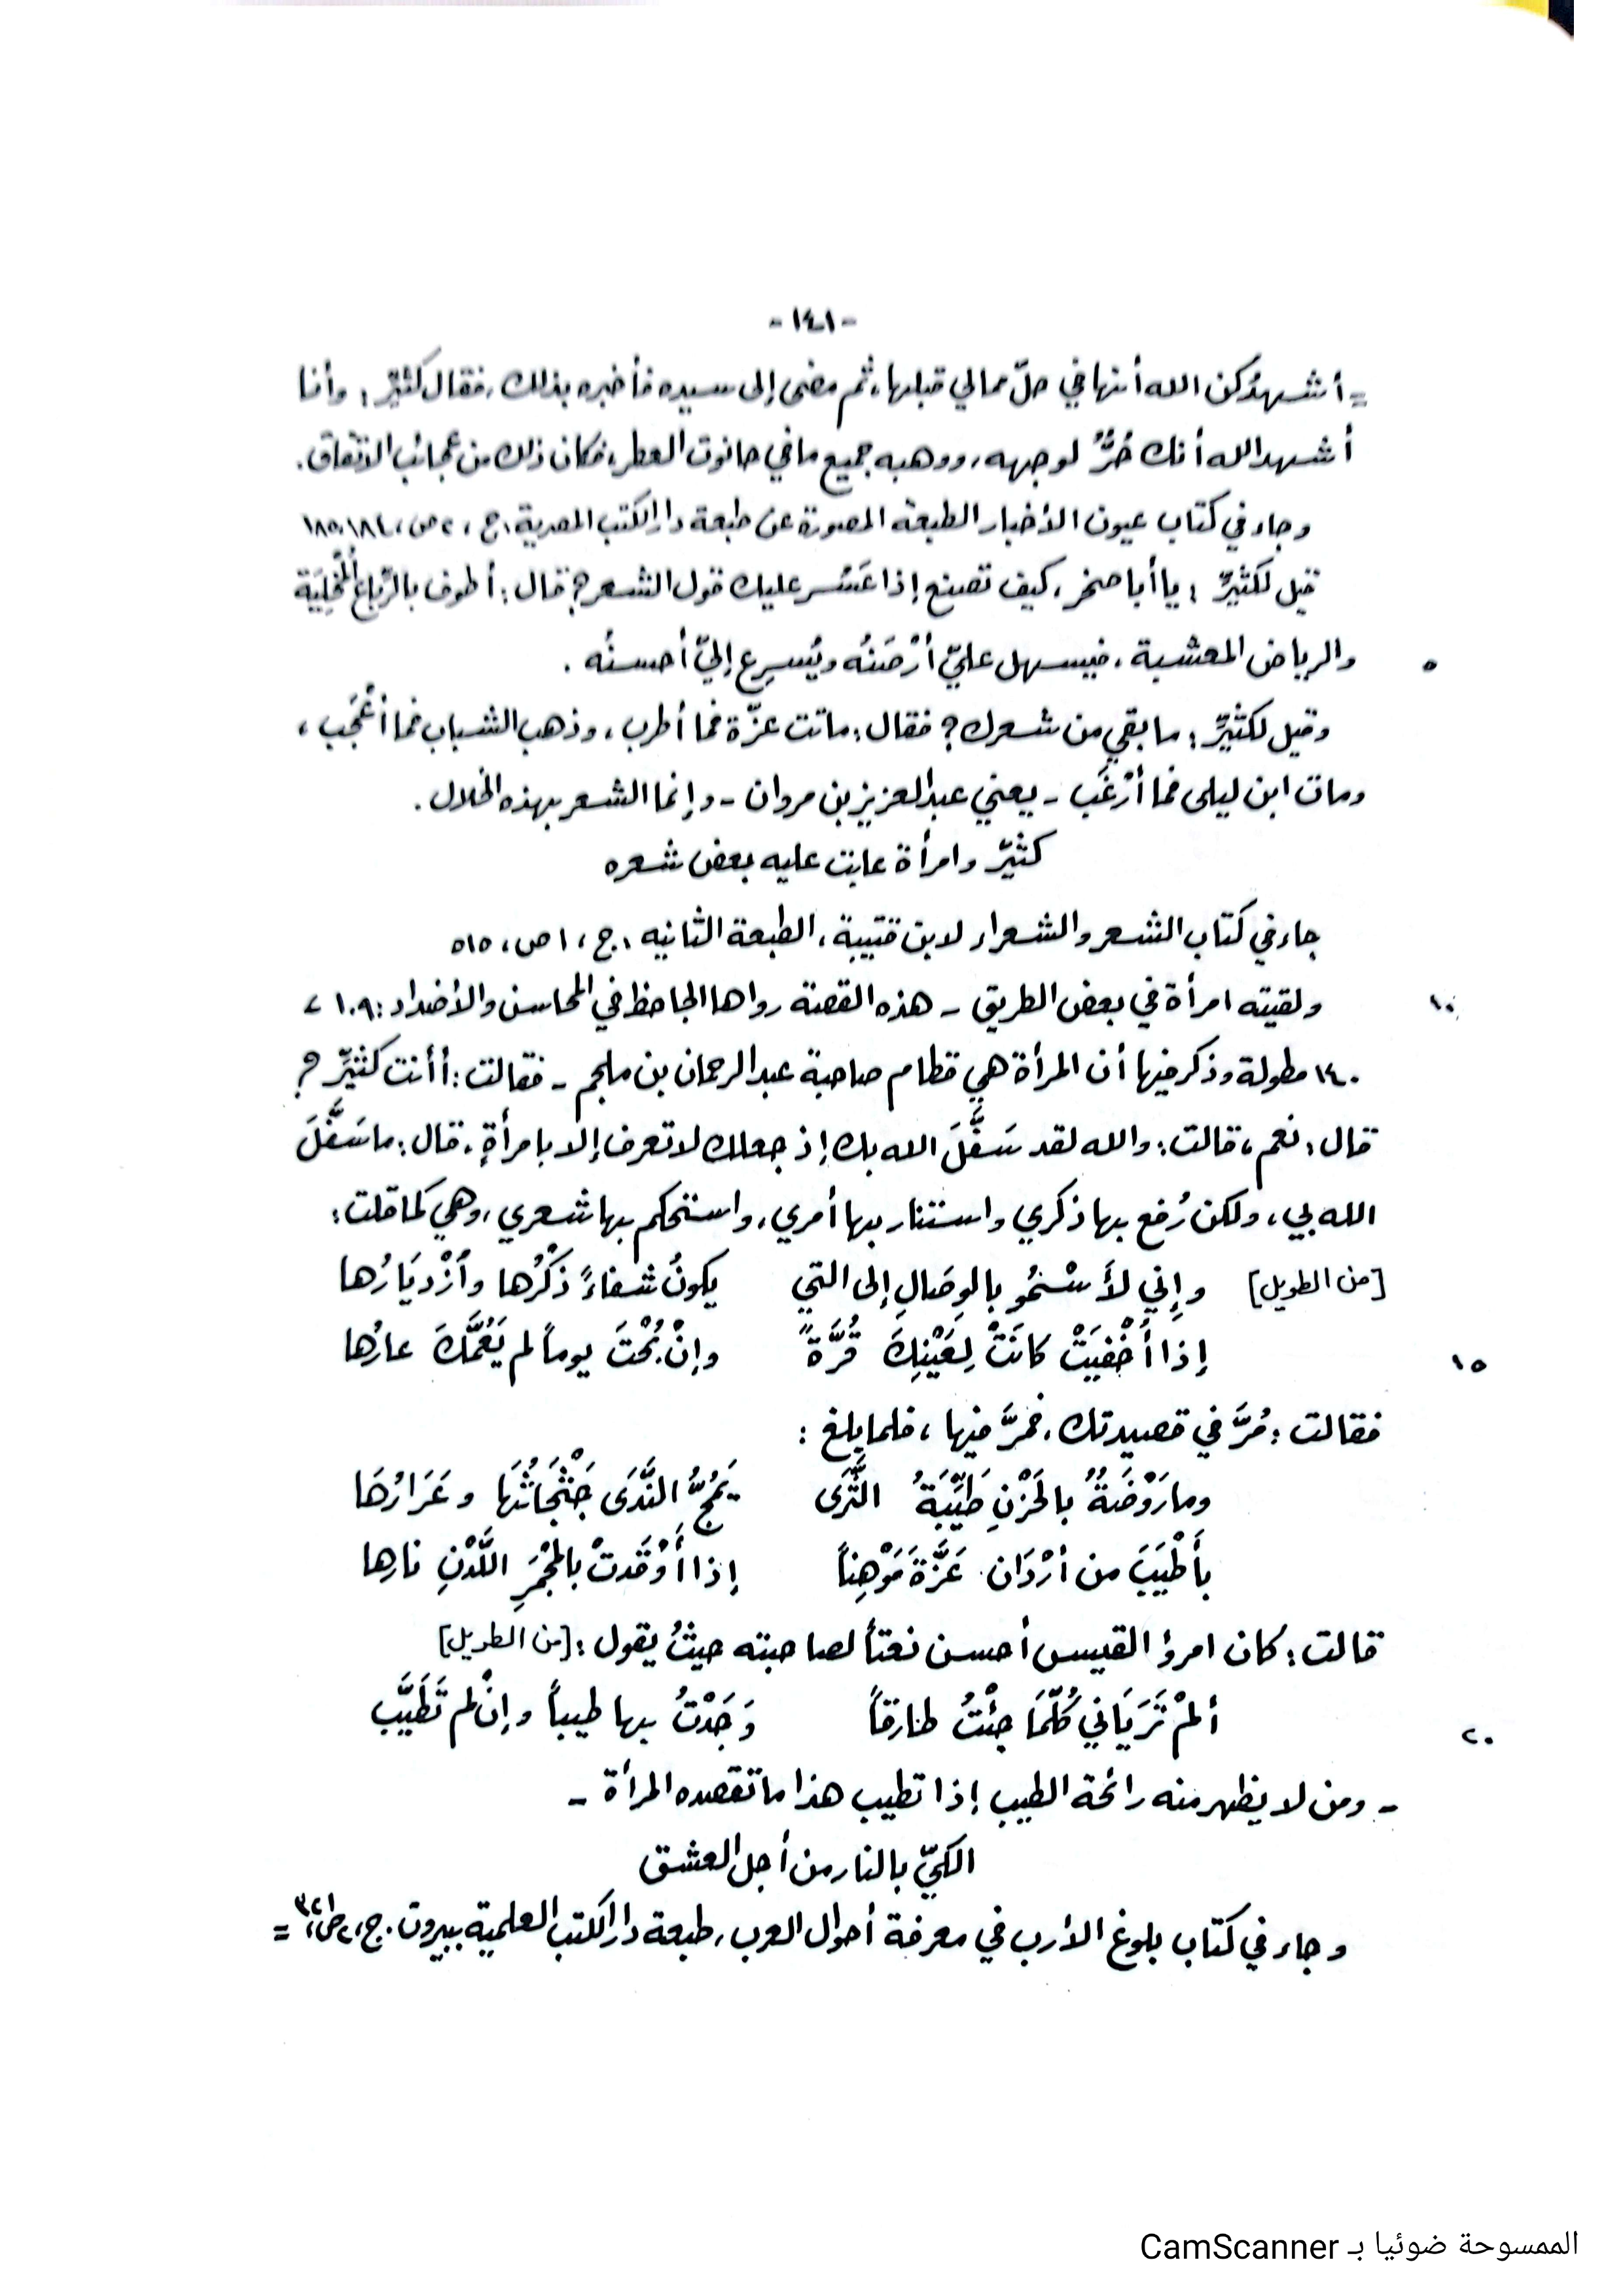 -١٤١-
= أشهدُكن الله أنها في حلّ مما لي قبلها، ثم مضى إلى سيده فأخبره بذلك، فقال كثيّر: وأنا
أشهد الله أنك حُرٌّ لوجهه، ووهبه جميع ما في حانوت العطر، فكان ذلك من عجائب الاتفاق.
وجاء في كتاب عيون الأخبار الطبعة المصورة عن طبعة دار الكتب المصرية، ج، ٢ ص، ١٨٤، ١٨٥
قيل لكثيِّر: يا أبا صخر، كيف تصنع إذا عَسُر عليك قول الشعر؟ قال: أطوف بالرِّباع المُخْلِيَة
٥ والرياض المعشبة، فيسهل عليّ أرْصَنُه ويُسرِع إليّ أحسنُه.
وقيل لكثيِّر: ما بقي من شعرك؟ فقال: ماتت عزّة فما أطرب، وذهب الشباب فما أعْجَب،
ومات ابن ليلى فما أرْغَب - يعني عبد العزيز بن مروان - وإنما الشعر بهذه الخلال.
كثيّر وامرأة عابت عليه بعض شعره
جاء في كتاب الشعر والشعراء لابن قتيبة، الطبعة الثانيه، ج، ١ ص، ٥١٥
١٠ ولقيته امرأة في بعض الطريق - هذه القصة رواها الجاحظ في المحاسن والأضداد: ١٠٩ -
١٤٠ مطولة وذكر فيها أن المرأة هي قطام صاحبة عبد الرحمان بن ملجم - فقالت: أأنت كثيِّر؟
قال: نعم، قالت: والله لقد سَفَّلَ الله بك إذ جعلك لا تعرف إلا بامرأةٍ، قال: ما سَفَّلَ
الله بي، ولكن رُفع بها ذكري واستنار بها أمري، واستحكم بها شعري، وهي كما قلت:
[من الطويل] وإِني لأَسْمُو بالوِصَالِ إلى التي يكونُ شفاءً ذكْرُها وأزْديَارُها
١٥ إذا أُخْفِيَتْ كانَتْ لِعَيْنِكَ قُرَّةً وإنْ بُحْتَ يوماً لم يَعُمَّكَ عارُها
فقالت: مُرَّ في قصيدتك، فمرَّ فيها، فلما بلغ:
وما رَوْضَةٌ بالحَزْنِ طَيِّبَةُ الثَّرَى يَمُجُّ النَّدَى جَثْجَاثُهَا وعَرَارُهَا
بأَطْيَبَ من أرْدَان عَزَّةَ مَوْهِناً إذا أُوْقَدتْ بالمِجْمَرِ اللَّدْنِ نارها
قالت: كان امرؤ القيس أحسن نعتاً لصاحبته حيثُ يقول: [من الطويل]
٢٠ ألمْ تَرَيَاني كُلَّمَا جئْتُ طارقاً وَجَدْتُ بها طيباً وإنْ لم تَطَيَّب
- ومن لا يظهر منه رائحة الطيب إذا تطيب هذا ما تقصده المرأة -
الكيّ بالنار من أجل العشق
وجاء في كتاب بلوغ الأرب في معرفة أحوال العرب، طبعة دار الكتب العلمية ببيروت. ج، ٢ ص، ٣٢١ =
الممسوحة ضوئيا بـ CamScanner